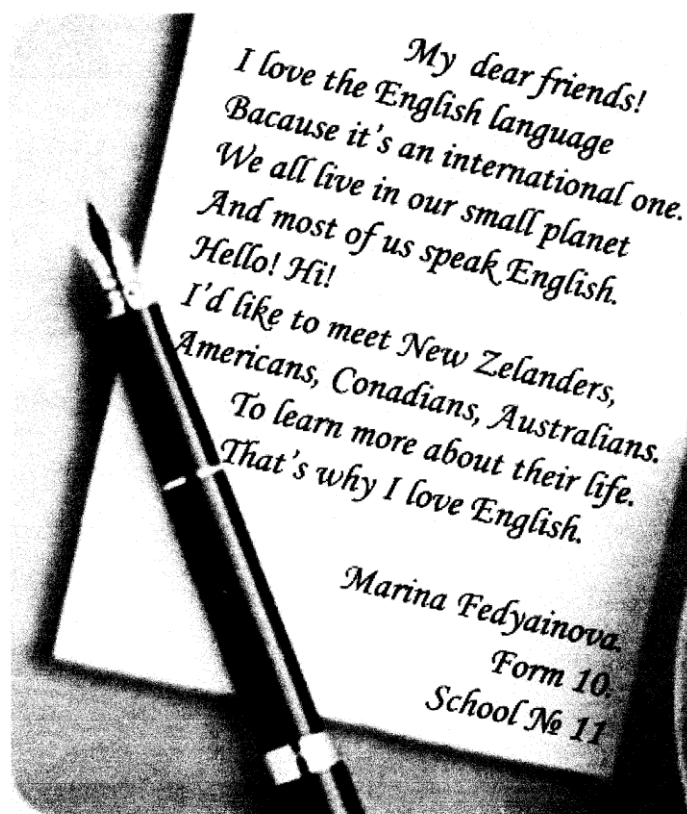 My dear friends!
I love the English language
Bacause it's an international one.
We all live in our small planet
And most of us speak English.
Hello! Hi!
I'd like to meet New Zelanders,
Americans, Conadians, Australians.
To learn more about their life.
That's why I love English.
Marina Fedyainova.
Form 10.
School № 11